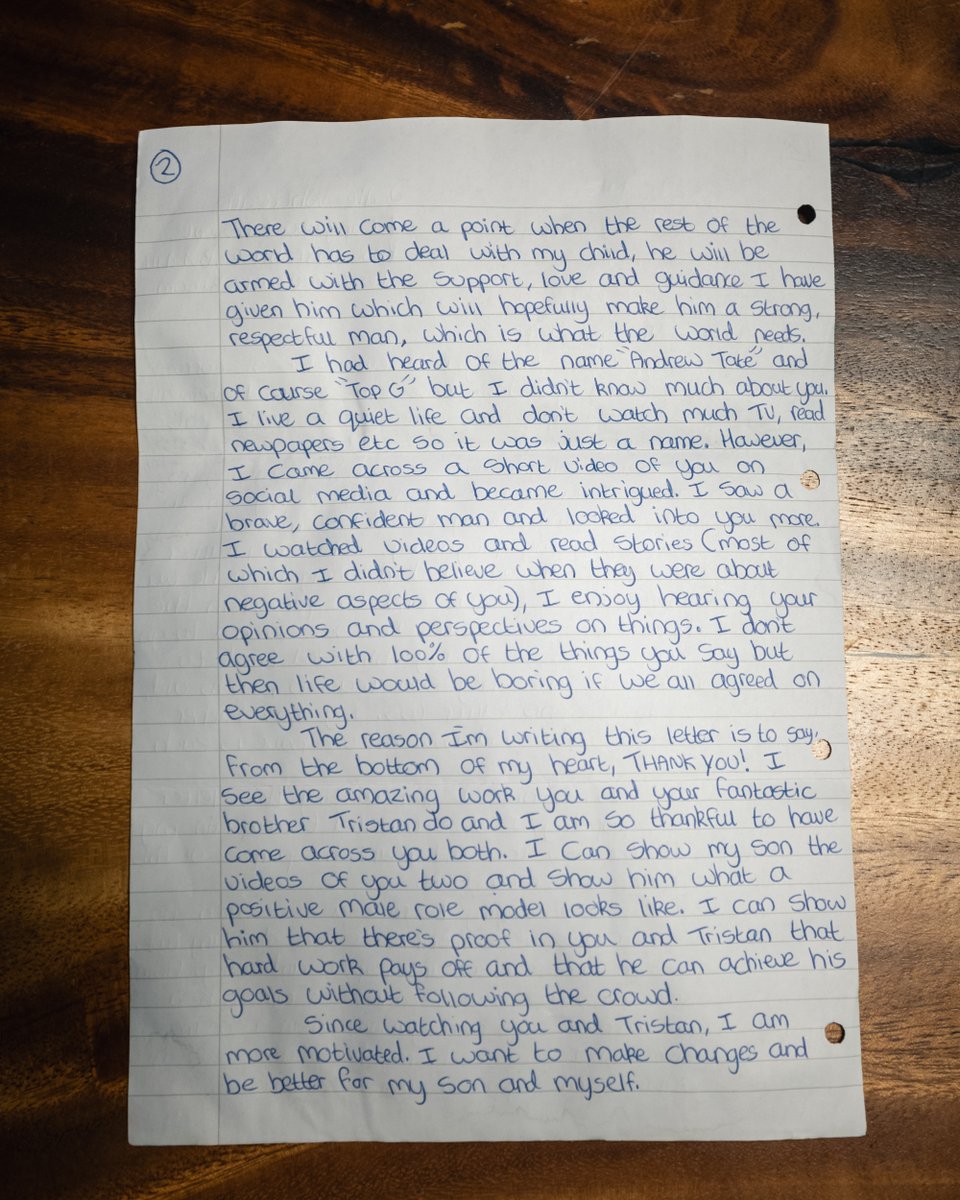 2
There will come a point when the rest of the
world has to deal with my child, he will be
armed with the support, love and guidance I have
given him which will hopefully make him a strong,
respectful man, which is what the world needs.
I had heard of the name "Andrew Tate" and
of course "Top G" but I didn't know much about you.
I live a quiet life and don't watch much TV, read
newpapers etc so it was just a name. However,
I came across a short video of you on
social media and became intrigued. I saw a
brave, confident man and looked into you more.
I watched videos and read stories (most of
which I didn't believe when they were about
negative aspects of you), I enjoy hearing your
opinions and perspectives on things. I don't
agree with 100% of the things you say but
then life would be boring if we all agreed on
everything.
The reason I'm writing this letter is to say,
from the bottom of my heart, THANK YOU! I
see the amazing work you and your fantastic
brother Tristan do and I am so thankful to have
come across you both. I can show my son the
videos of you two and show him what a
positive male role model looks like. I can show
him that there's proof in you and Tristan that
hard work pays off and that he can achieve his
goals without following the crowd.
Since watching you and Tristan, I am
more motivated. I want to make changes and
be better for my son and myself.